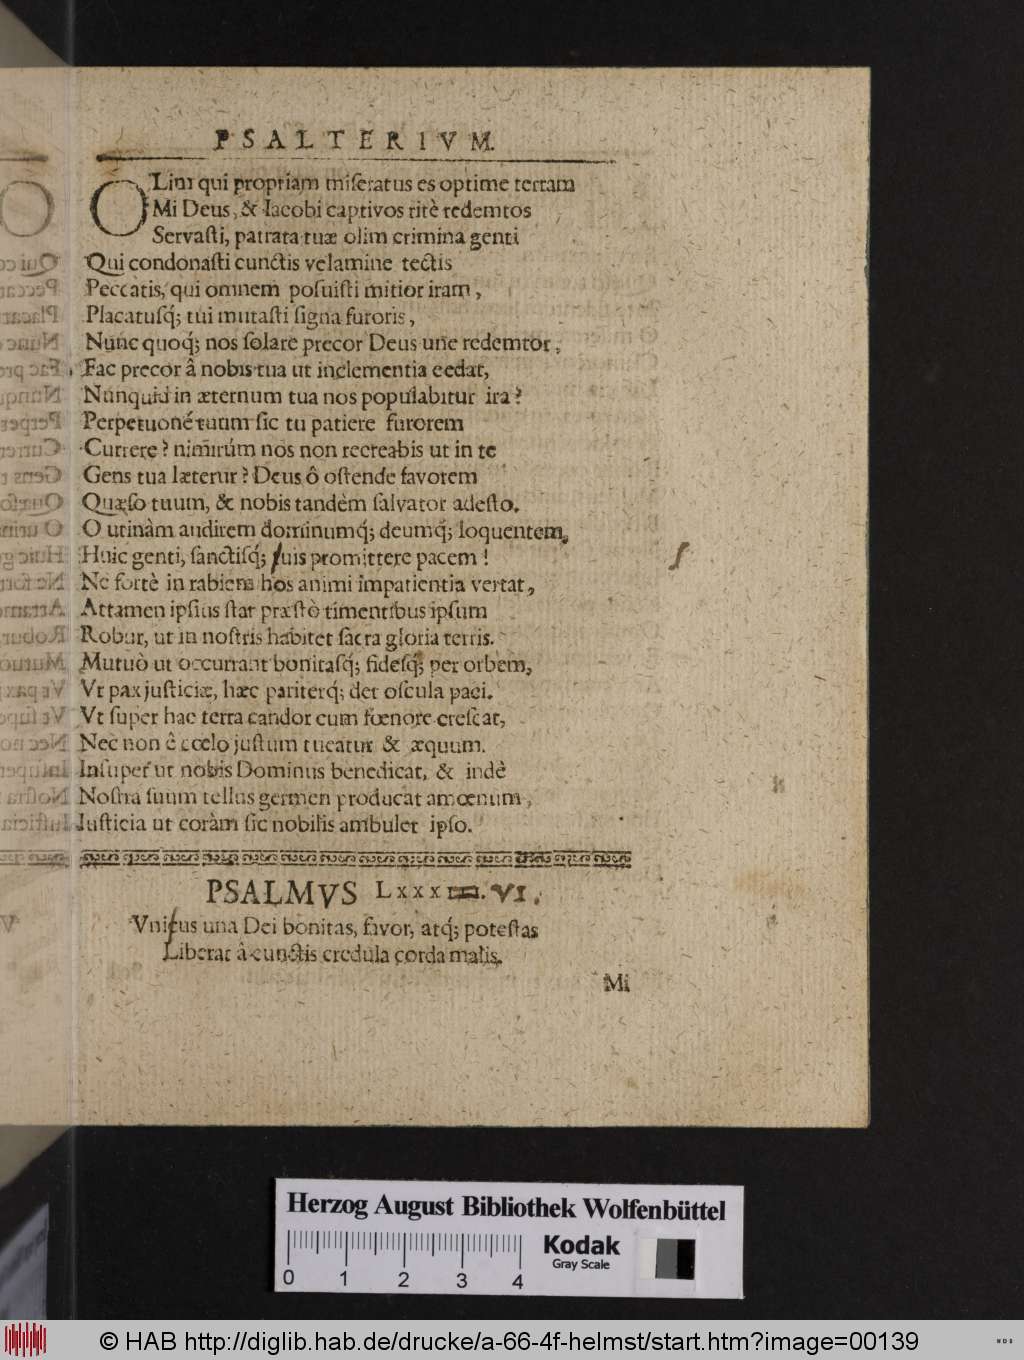 PSALTERIVM.
OLim qui propriam miseratus es optime terram
Mi Deus, & Iacobi captivos ritè redemtos
Servasti, patrata tuæ olim crimina genti
Qui condonasti cunctis velamine tectis
Peccatis, qui omnem posuisti mitior iram,
Placatusq́; tui mutasti signa furoris,
Nunc quoq́; nos solare precor Deus une redemtor,
Fac precor â nobis tua ut inclementia cedat,
Nunquid in æternum tua nos populabitur ira?
Perpetuoné tuum sic tu patiere furorem
Currere? nimirúm nos non recreabis ut in te
Gens tua lætetur? Deus ô ostende favorem
Quæso tuum, & nobis tandèm salvator adesto.
O utinàm audirem dominumq́; deumq́; loquentem,
Huic genti, sanctisq́; suis promittere pacem!
Ne fortè in rabiem hos animi impatientia vertat,
Attamen ipsius stat præstò timentibus ipsum
Robur, ut in nostris habitet sacra gloria terris.
Mutuò ut occurrant bonitasq́; fidesq́; per orbem,
Vt pax justiciæ, hæc pariterq́; det oscula paci.
Vt super hac terra candor cum fœnore crescat,
Nec non ê cœlo justum tueatur & æquum.
Insuper ut nobis Dominus benedicat, & indè
Nostra suum tellus germen producat amœnum,
Iusticia ut coràm sic nobilis ambulet ipso.
PSALMVS Lxxx VI.
Vnicus una Dei bonitas, favor, atq́; potestas
Liberat â cunctis credula corda malis.
Mi
Herzog August Bibliothek Wolfenbüttel
Kodak
Gray Scale
0 1 2 3 4
© HAB http://diglib.hab.de/drucke/a-66-4f-helmst/start.htm?image=00139